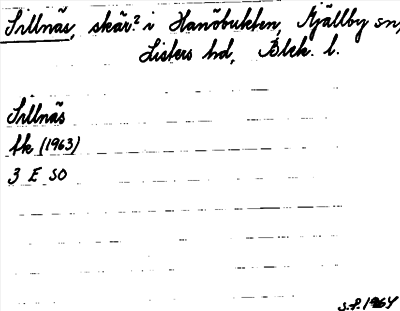 Sillnäs, skär? i Hanöbukten, Mjällby sn,
Listers hd, Blek. l.
Sillnäs
fk (1963)
3 E SO
S.F. 1964